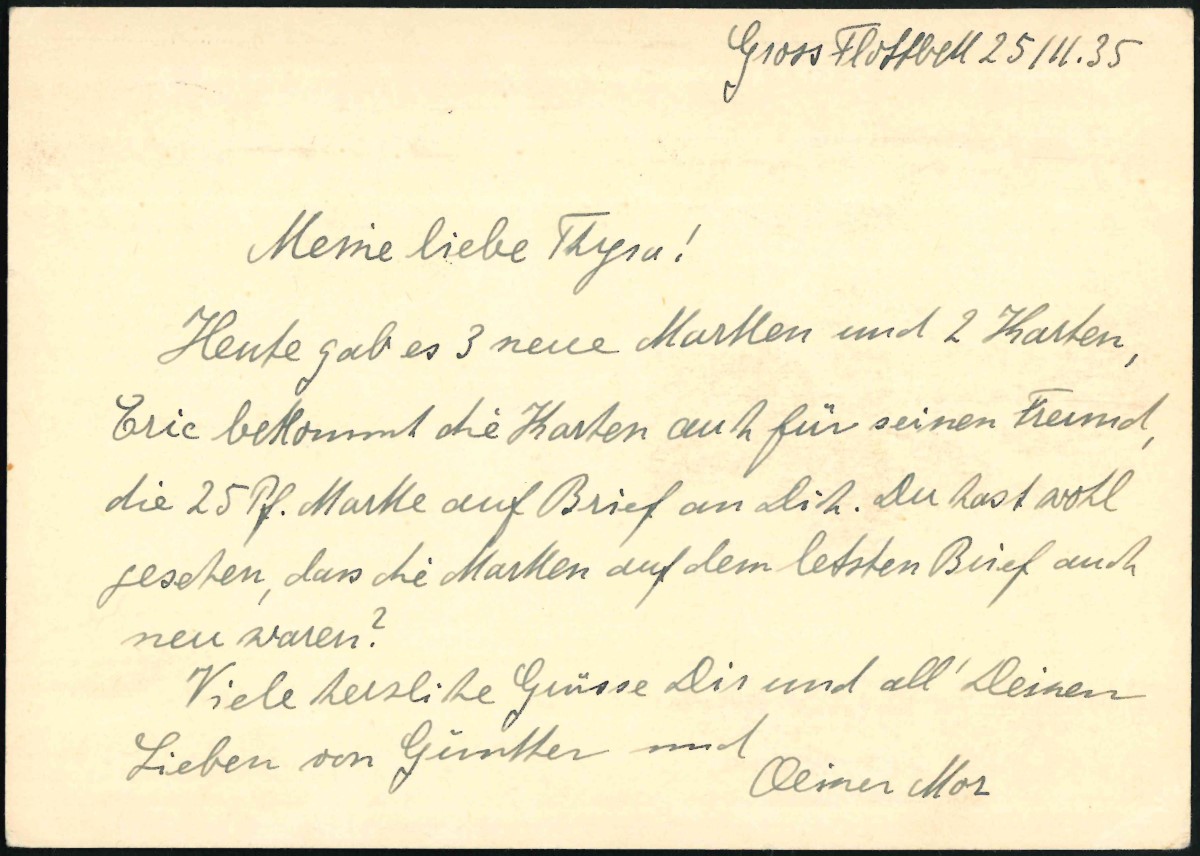 Gross Flottbek 25/11.35
Meine liebe Thyra!
Heute gab es 3 neue Marken und 2 Karten,
Eric bekommt die Karten auch für seinen Freund,
die 25 Pf. Marke auf Brief an Dich. Du hast wohl
gesehen, dass die Marken auf dem letzten Brief auch
neu waren?
Viele herzliche Grüsse Dir und all' Deinen
Lieben von Günther und
Deiner Mor